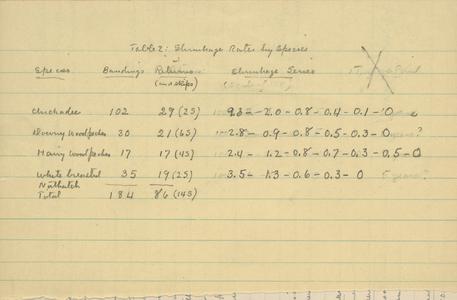 Table 2: Shrinkage Rates by Species
Species Bandings Returns Shrinkage Series
(and skips)
Chickadee 102 29 (2S) 9.3 - 2.0 - 0.8 - 0.4 - 0.1 - 0
Downy Woodpecker 30 21 (6S) 2.8 - 0.9 - 0.8 - 0.5 - 0.3 - 0
Hairy Woodpecker 17 17 (4S) 2.4 - 1.2 - 0.8 - 0.7 - 0.3 - 0.5 - 0
White breasted 35 19 (2S) 3.5 - 1.3 - 0.6 - 0.3 - 0
Nuthatch
Total 184 86 (14S)